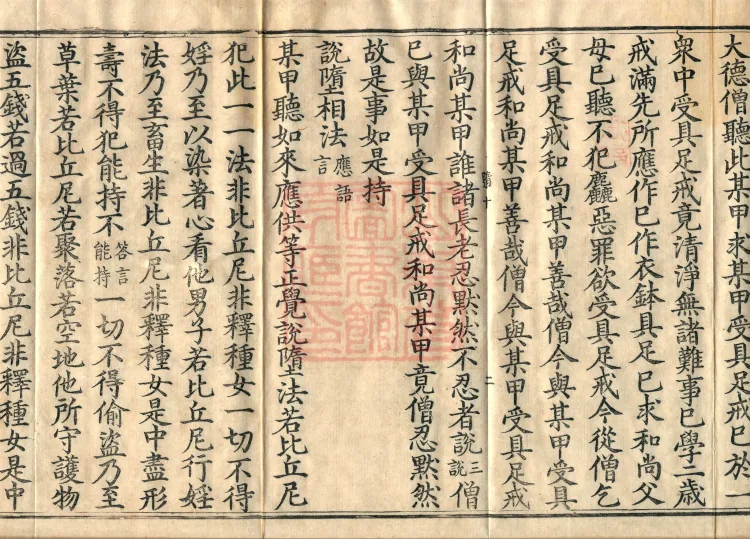 大德僧聽此某甲求某甲受具足戒已於一
衆中受具足戒竟清淨無諸難事已學二歲
戒滿先所應作已作衣鉢具足已求和尚父
母已聽不犯麤惡罪欲受具足戒今從僧乞
受具足戒和尚某甲善哉僧今與某甲受具
足戒和尚某甲善哉僧今與某甲受具足戒
二
和尚某甲誰諸長老忍默然不忍者說三說僧
已與某甲受具足戒和尚某甲竟僧忍默然
故是事如是持
說墮相法應語言
某甲聽如來應供等正覺說墮法若比丘尼
犯此一一法非比丘尼非釋種女一切不得
婬乃至以染著心看他男子若比丘尼行婬
法乃至畜生非比丘尼非釋種女是中盡形
壽不得犯能持不答言能持一切不得偷盜乃至
草葉若比丘尼若聚落若空地他所守護物
盜五錢若過五錢非比丘尼非釋種女是中